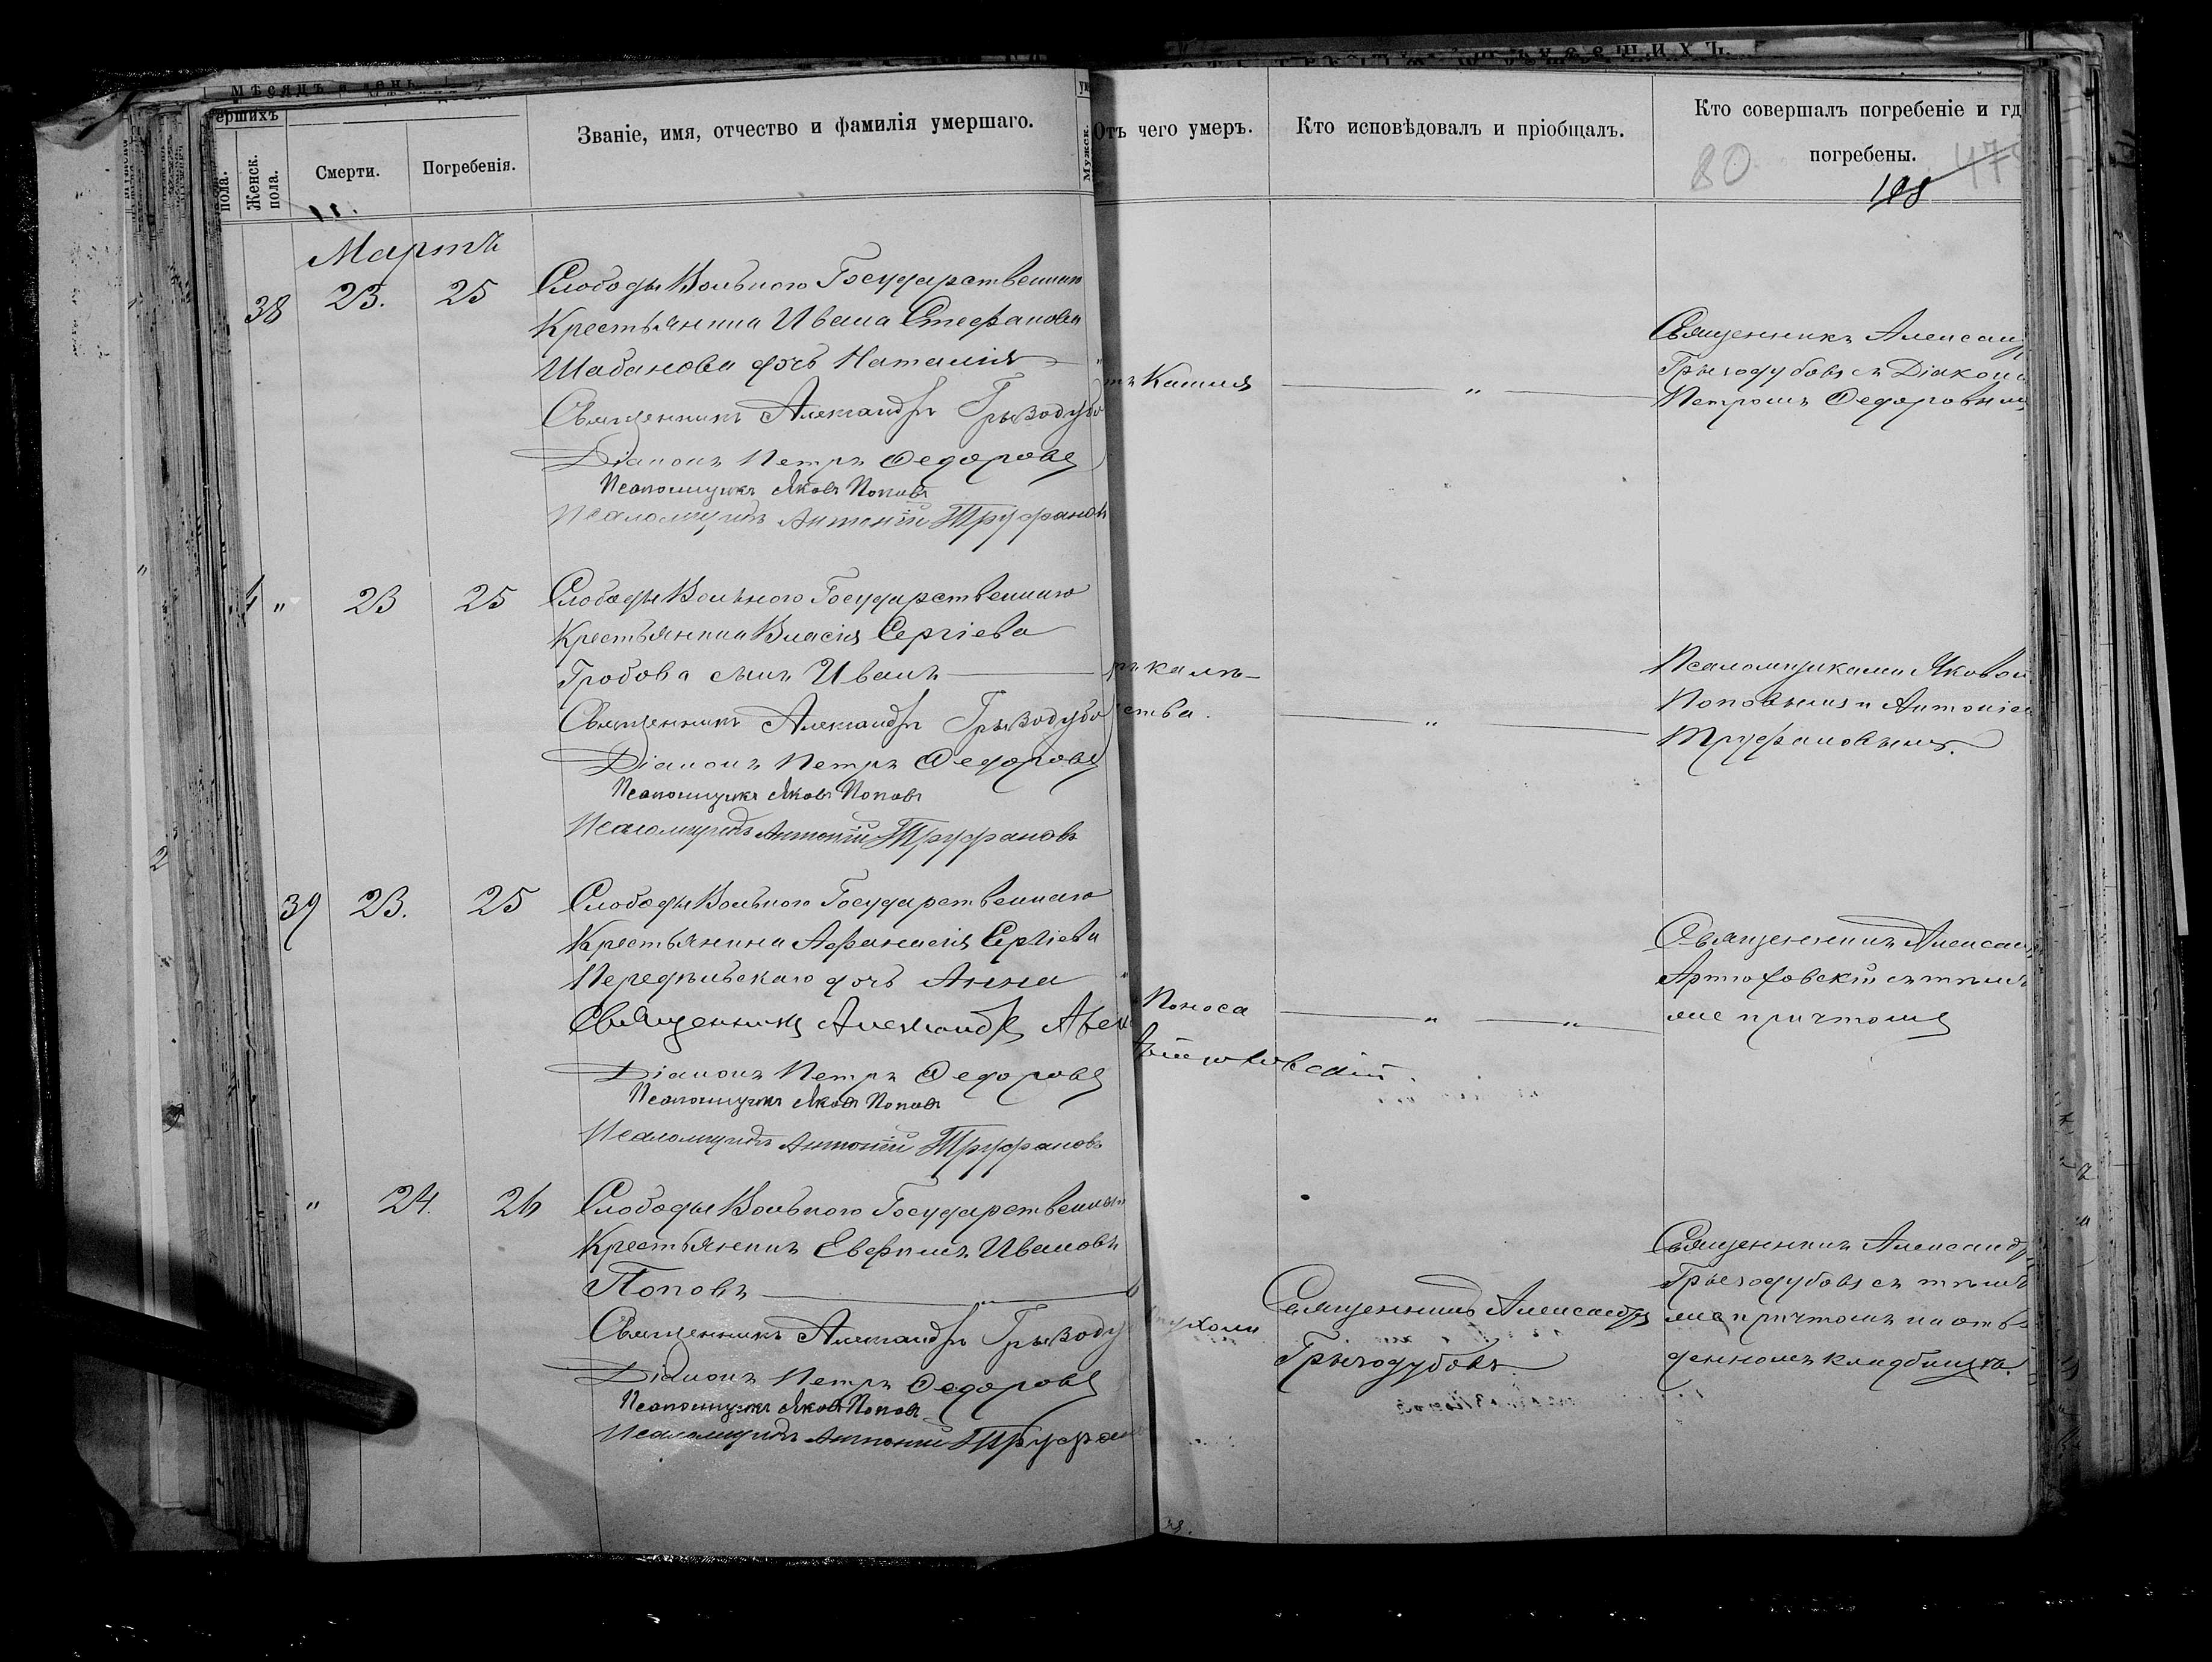 Мѣсяцъ и день
ершихъ
пола.
Женск. пола.
Смерти.
Погребенія.
Званіе, имя, отчество и фамилія умершаго.
Мужск.
Отъ чего умеръ.
Кто исповѣдовалъ и пріобщалъ.
Кто совершалъ погребеніе и гд
погребены.
80
Мартъ
38 23. 25 Слободы Вольного Государственнаго
Крестьянина Ивана Стефанова
Шабанова дочь Наталия
Священникъ Александръ Грызодубо
Діаконъ Петръ Федоровъ
Псаломщикъ Яковъ Поповъ
Псаломщикъ Антоній Труфановъ
Кашля
Священникъ Александ
Грызодубовъ съ Діакон
Петромъ Федоровым
" 23 25 Слободы Вольного Государственнаго
Крестьянина Власія Сергіева
Гробова сынъ Иванъ
Священникъ Александръ Грызодубо
Діаконъ Петръ Федоровъ
Псаломщикъ Яковъ Поповъ
Псаломщикъ Антоній Труфановъ
ства.
Псаломщиками Яковом
Поповымъ и Антоніем
Труфановымъ.
39 23. 25 Слободы Вольного Государственнаго
Крестьянина Афанасія Сергіева
дочь Анна
Священникъ Александръ
Артюховскій
Діаконъ Петръ Федоровъ
Псаломщикъ Яковъ Поповъ
Псаломщикъ Антоній Труфановъ
Поноса
Священникъ Александ
Артюховскій съ тѣмъ
же причтомъ
" 24. 26 Слободы Вольного Государственный
Крестьянинъ Евфимъ Ивановъ
Поповъ
Священникъ Александръ Грызоду
Діаконъ Петръ Федоровъ
Псаломщикъ Яковъ Поповъ
Псаломщикъ Антоній Труфан
Священникъ Александръ
Грызодубовъ
Священникъ Александр
Грызодубовъ съ тѣмъ
же причтомъ на отве
денномъ кладбищѣ.